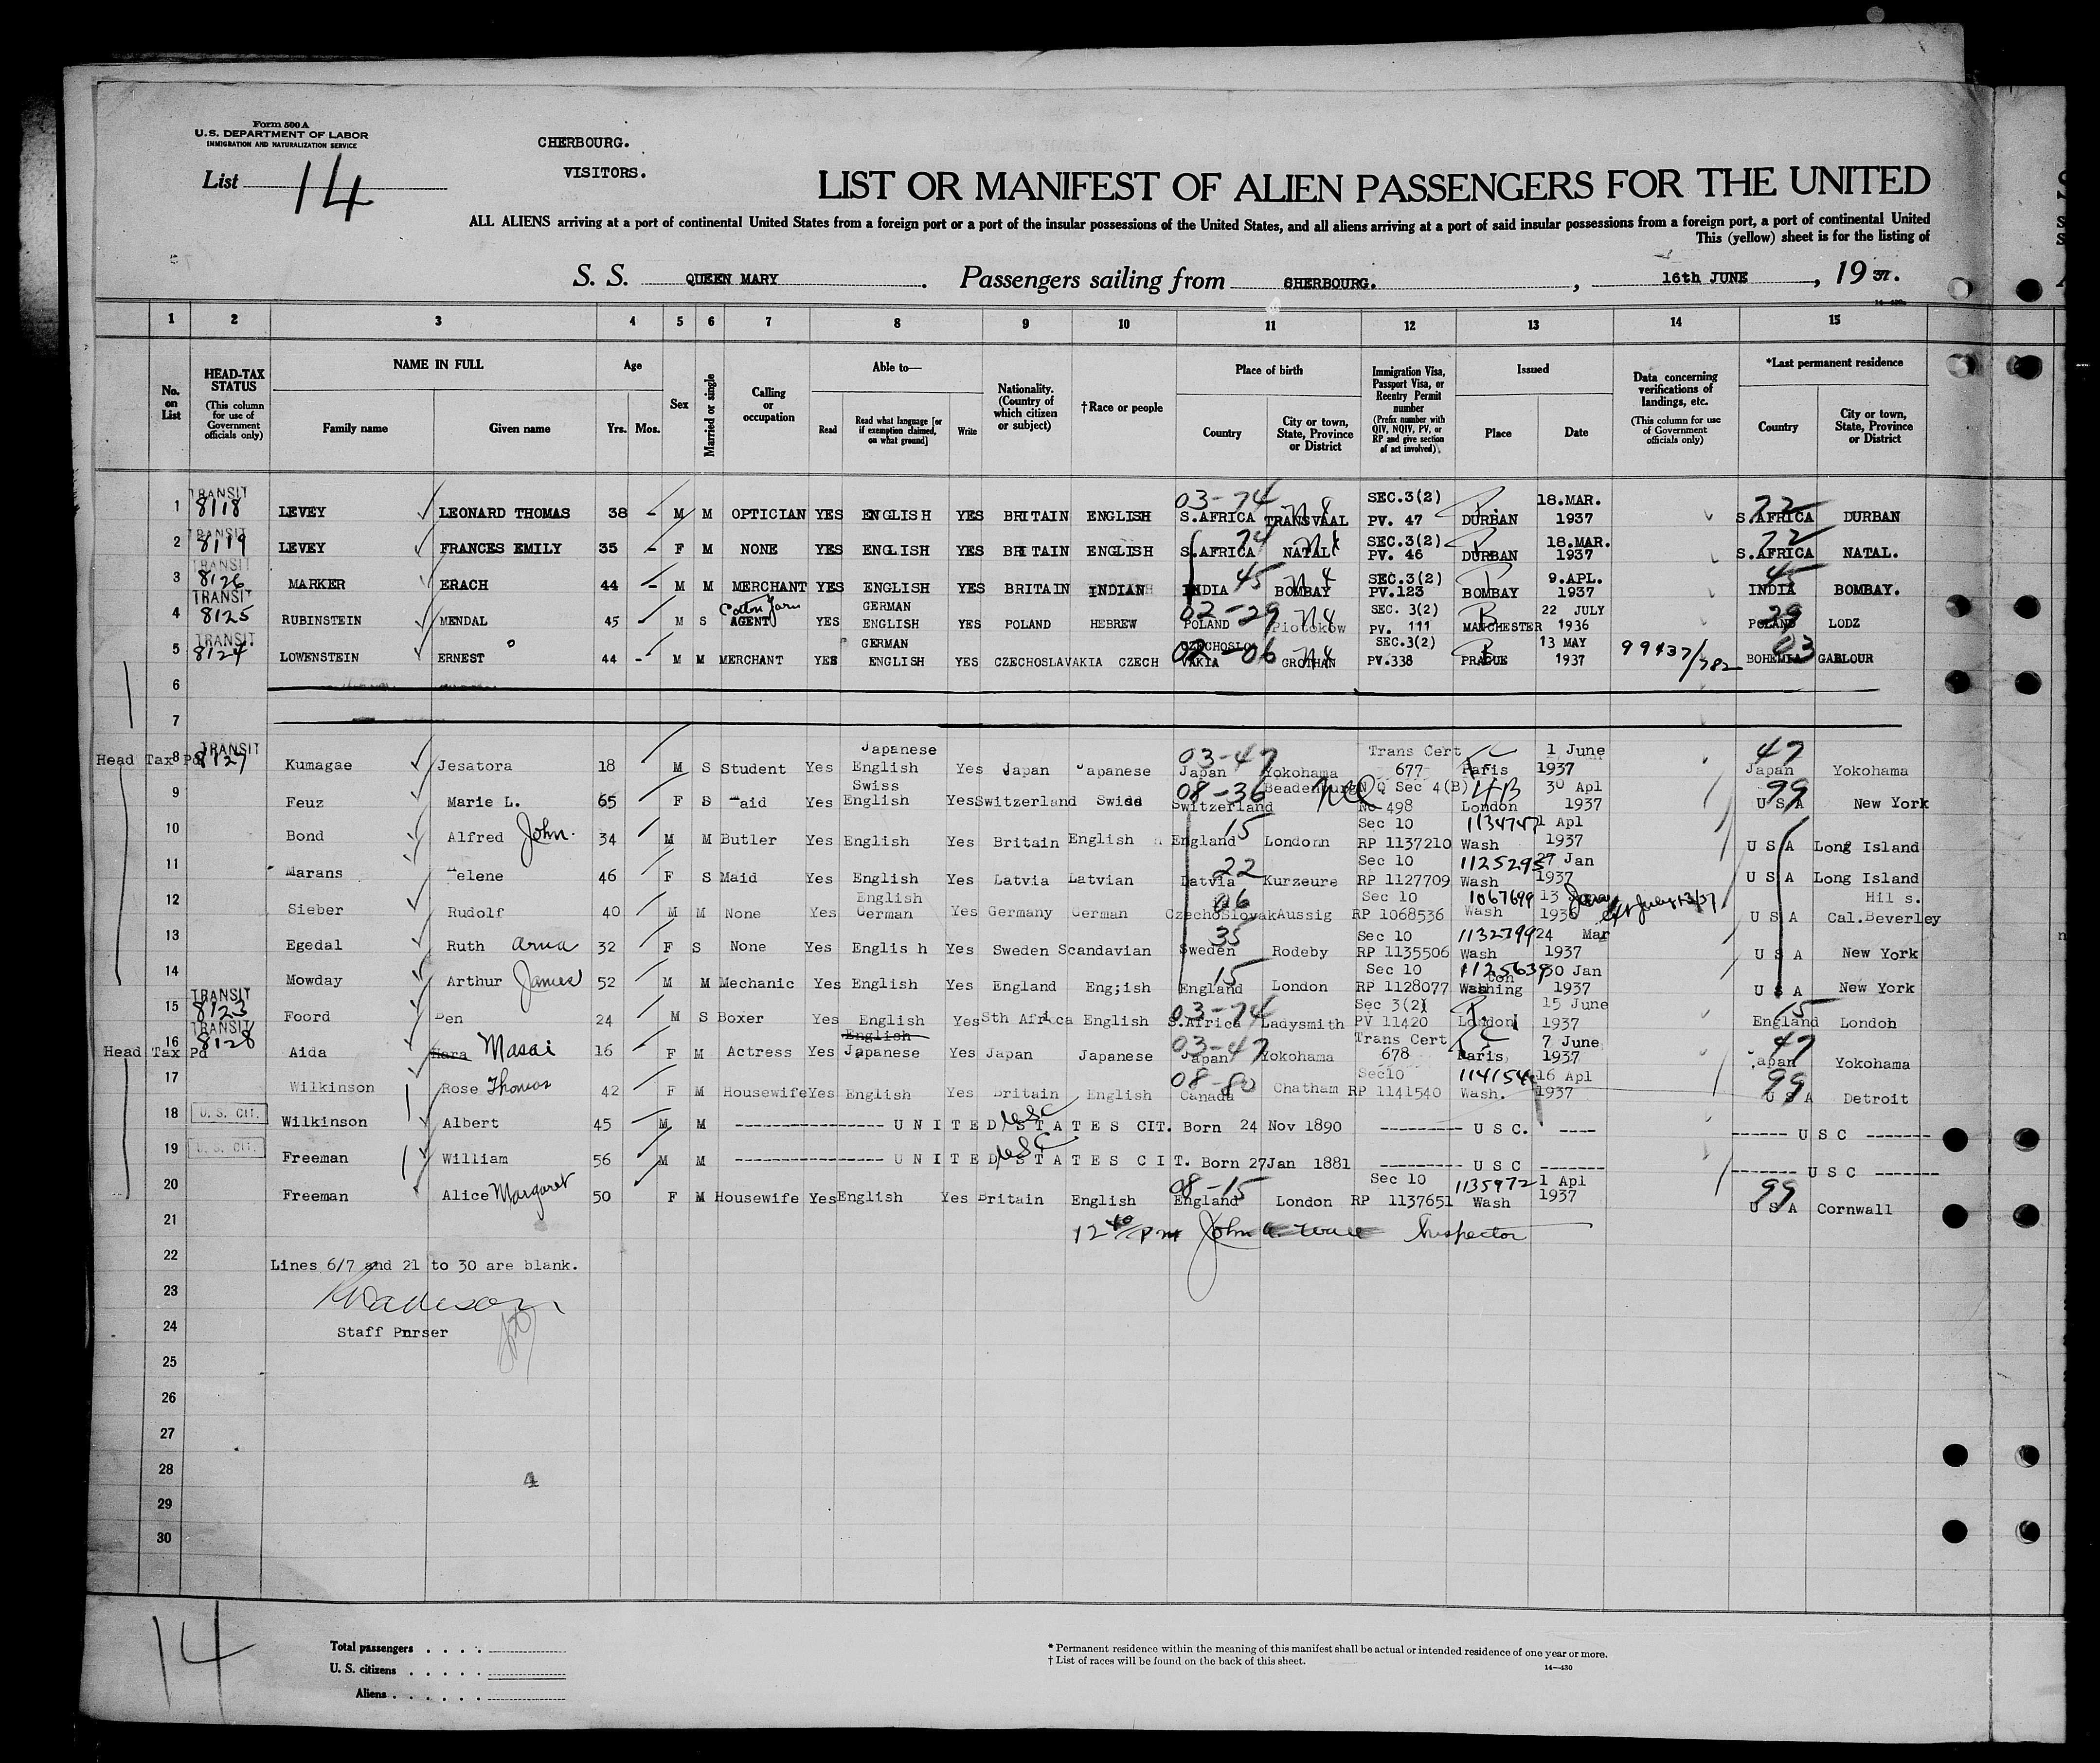 Form 500 A
U.S. DEPARTMENT OF LABOR
IMMIGRATION AND NATURALIZATION SERVICE
List 14
CHERBOURG.
VISITORS.
LIST OR MANIFEST OF ALIEN PASSENGERS FOR THE UNITED
ALL ALIENS arriving at a port of continental United States from a foreign port or a port of the insular possessions of the United States, and all aliens arriving at a port of said insular possessions from a foreign port, a port of continental United
This (yellow) sheet is for the listing of
S. S. QUEEN MARY. Passengers sailing from SHERBOURG., 16th JUNE, 19 37.
1 2 3 4 5 6 7 8 9 10 11 12 13 14 15
No. on List
HEAD-TAX STATUS (This column for use of Government officials only)
NAME IN FULL Family name Given name
Age Yrs. Mos.
Sex
Married or single
Calling or occupation
Able to— Read Read what language [or if exemption claimed, on what ground] Write
Nationality. (Country of which citizen or subject)
†Race or people
Place of birth Country City or town, State, Province or District
Immigration Visa, Passport Visa, or Reentry Permit number (Prefix number with QIV, NQIV, PV, or RP and give section of act involved)
Issued Place Date
Data concerning verifications of landings, etc. (This column for use of Government officials only)
*Last permanent residence Country City or town, State, Province or District
1 TRANSIT 8118 LEVEY LEONARD THOMAS 38 - M M OPTICIAN YES ENGLISH YES BRITAIN ENGLISH 03-74 S.AFRICA TRANSVAAL SEC.3(2) PV. 47 DURBAN 18.MAR. 1937 72 S.AFRICA DURBAN
2 TRANSIT 8119 LEVEY FRANCES EMILY 35 - F M NONE YES ENGLISH YES BRITAIN ENGLISH 74 S.AFRICA NATAL SEC.3(2) PV. 46 DURBAN 18.MAR. 1937 72 S.AFRICA NATAL.
3 TRANSIT 8126 MARKER ERACH 44 - M M MERCHANT YES ENGLISH YES BRITAIN INDIAN INDIA 45 BOMBAY SEC.3(2) PV.123 BOMBAY 9.APL. 1937 45 INDIA BOMBAY.
4 TRANSIT 8125 RUBINSTEIN MENDAL 45 M S Cotton Yarn AGENT YES GERMAN ENGLISH YES POLAND HEBREW 02-29 POLAND Piotokow SEC. 3(2) PV. 111 MANCHESTER 22 JULY 1936 29 POLAND LODZ
5 TRANSIT 8124 LOWENSTEIN ERNEST 44 - M M MERCHANT YES GERMAN ENGLISH YES CZECHOSLAVAKIA CZECH CZECHOSLOVAKIA 02-06 GROTHAN SEC.3(2) PV.338 PRAGUE 13 MAY 1937 99437/782 03 BOHEMIA GABLOUR
6
7
Head Tax Pd 8 TRANSIT 8127 Kumagae Jesatora 18 M S Student Yes Japanese English Yes Japan Japanese 03-47 Japan Yokohama Trans Cert 677 Paris 1 June 1937 47 Japan Yokohama
9 Feuz Marie L. 65 F S aid Yes Swiss English Yes Switzerland Swiss 08-36 Switzerland Beadenburg N) Q Sec 4(B) No 498 London 30 Apl 1937 99 U S A New York
10 Bond Alfred John. 34 M M Butler Yes English Yes Britain English England 15 Londonn Sec 10 RP 1137210 1134747 Wash 1 Apl 1937 U S A Long Island
11 Marans elene 46 F S Maid Yes English Yes Latvia Latvian 22 Latvia Kurzeure Sec 10 RP 1127709 1125295 Wash 27 Jan 1937 U S A Long Island
12 Sieber Rudolf 40 M M None Yes English German Yes Germany German 06 CzechoSlovak Aussig Sec 10 RP 1068536 1067699 Wash 13 1936 U S A Hil s. Cal.Beverley
13 Egedal Ruth Arna 32 F S None Yes Englis h Yes Sweden Scandavian 35 Sweden Rodeby Sec 10 RP 1135506 1132799 Wash 24 Mar 1937 U S A New York
14 Mowday Arthur James 52 M M Mechanic Yes English Yes England Eng;ish 15 England London Sec 10 RP 1128077 1125639 Washington 30 Jan 1937 U S A New York
15 TRANSIT 8123 Foord Ben 24 M S Boxer Yes English Yes Sth Africa English 03-74 S.Africa Ladysmith Sec 3(2) PV 11420 London 15 June 1937 15 England London
Head Tax Pd 16 TRANSIT 8128 Aida Hara Masai 16 F M Actress Yes English Japanese Yes Japan Japanese 03-47 Japan Yokohama Trans Cert 678 Paris 7 June 1937 47 Japan Yokohama
17 Wilkinson Rose Thomas 42 F M Housewife Yes English Yes Britain English 08-80 Canada Chatham Sec10 RP 1141540 114154 Wash. 16 Apl 1937 99 U S A Detroit
18 U. S. CIT. Wilkinson Albert 45 M M ---------------- U N I T E D S T A T E S CIT. USC Born 24 Nov 1890 --------- U S C. ---- ------ U S C -------
19 U. S. CIT. Freeman William 56 M M ---------------- U N I T E D S T A T E S C I T. USC Born 27Jan 1881 --------- U S C ------- ------- U S C -------
20 Freeman Alice Margaret 50 F M Housewife Yes English Yes Britain English 08-15 England London Sec 10 RP 1137651 1135972 Wash 1 Apl 1937 99 U S A Cornwall
21 12 40/ Pm John Inspector
22 Lines 6/7 and 21 to 30 are blank.
23
24 Staff Purser
25
26
27
28 4
29
30
14
Total passengers . . . .
U. S. citizens . . . . .
Aliens . . . . . .
* Permanent residence within the meaning of this manifest shall be actual or intended residence of one year or more.
† List of races will be found on the back of this sheet.
14—430